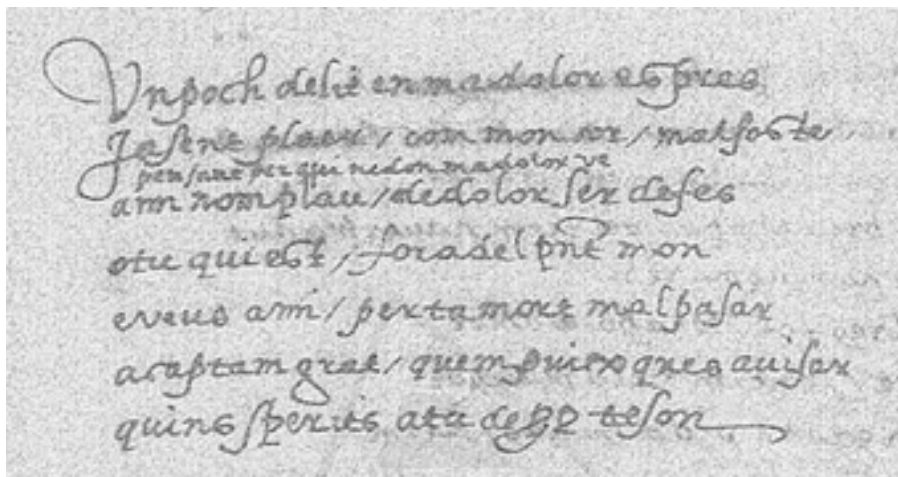 Vn poch delit en ma dolor es pres
Ja sent plaer / com mon cor / mal soste
pensant per qui nedon ma dolor ve
ami nom plau / de dolor ser defes
o tu qui est / fora del pnt mon
e veus ami / per ta mort mal pasar
acaptam grat / quem puixques auisar
quins sperits a tu de prop te son